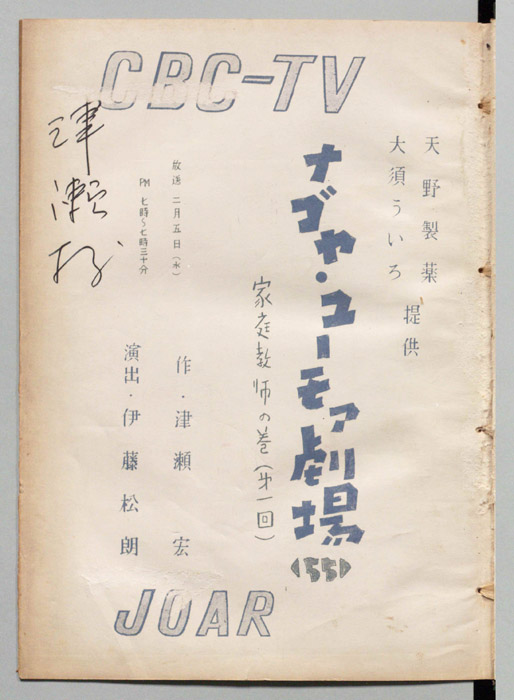 CBC-TV
天野製薬
大須ういろ 提供
ナゴヤ・ユーモア劇場
〈55〉
家庭教師の巻(第一回)
放送 二月五日(水)
PM 七時〜七時三十分
作・津瀬 宏
演出・伊藤松朗
津瀬
JOAR